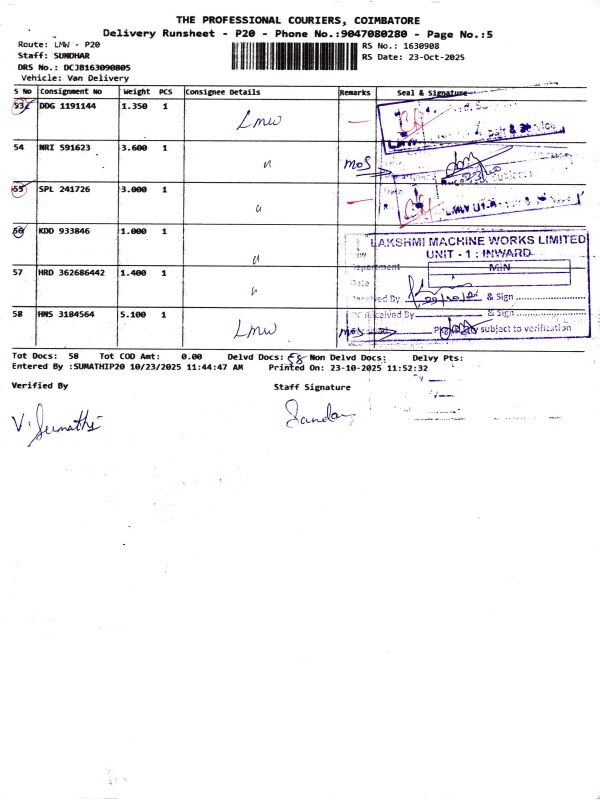 THE PROFESSIONAL COURIERS, COIMBATORE
Delivery Runsheet - P20 - Phone No.:9047080280 - Page No.:5
Route: LMW - P20
RS No.: 1630908
Staff: SUNDHAR
RS Date: 23-Oct-2025
DRS No.: DCJB163090805
Vehicle: Van Delivery
S No Consignment No Weight PCS Consignee Details Remarks Seal & Signature
53 DDG 1191144 1.350 1 LMW
54 NRI 591623 3.600 1 " MOS
55 SPL 241726 3.000 1 "
56 KDD 933846 1.000 1 "
LAKSHMI MACHINE WORKS LIMITED
UNIT - 1 : INWARD
57 HRD 362686442 1.400 1 "
MIN
Date
Received By & Sign
58 HNS 3184564 5.100 1 LMW
Received By & Sign
subject to verification
Tot Docs: 58 Tot COD Amt: 0.00 Delvd Docs: 58 Non Delvd Docs: Delvy Pts:
Entered By :SUMATHIP20 10/23/2025 11:44:47 AM Printed On: 23-10-2025 11:52:32
Verified By Staff Signature
V. Sumathi